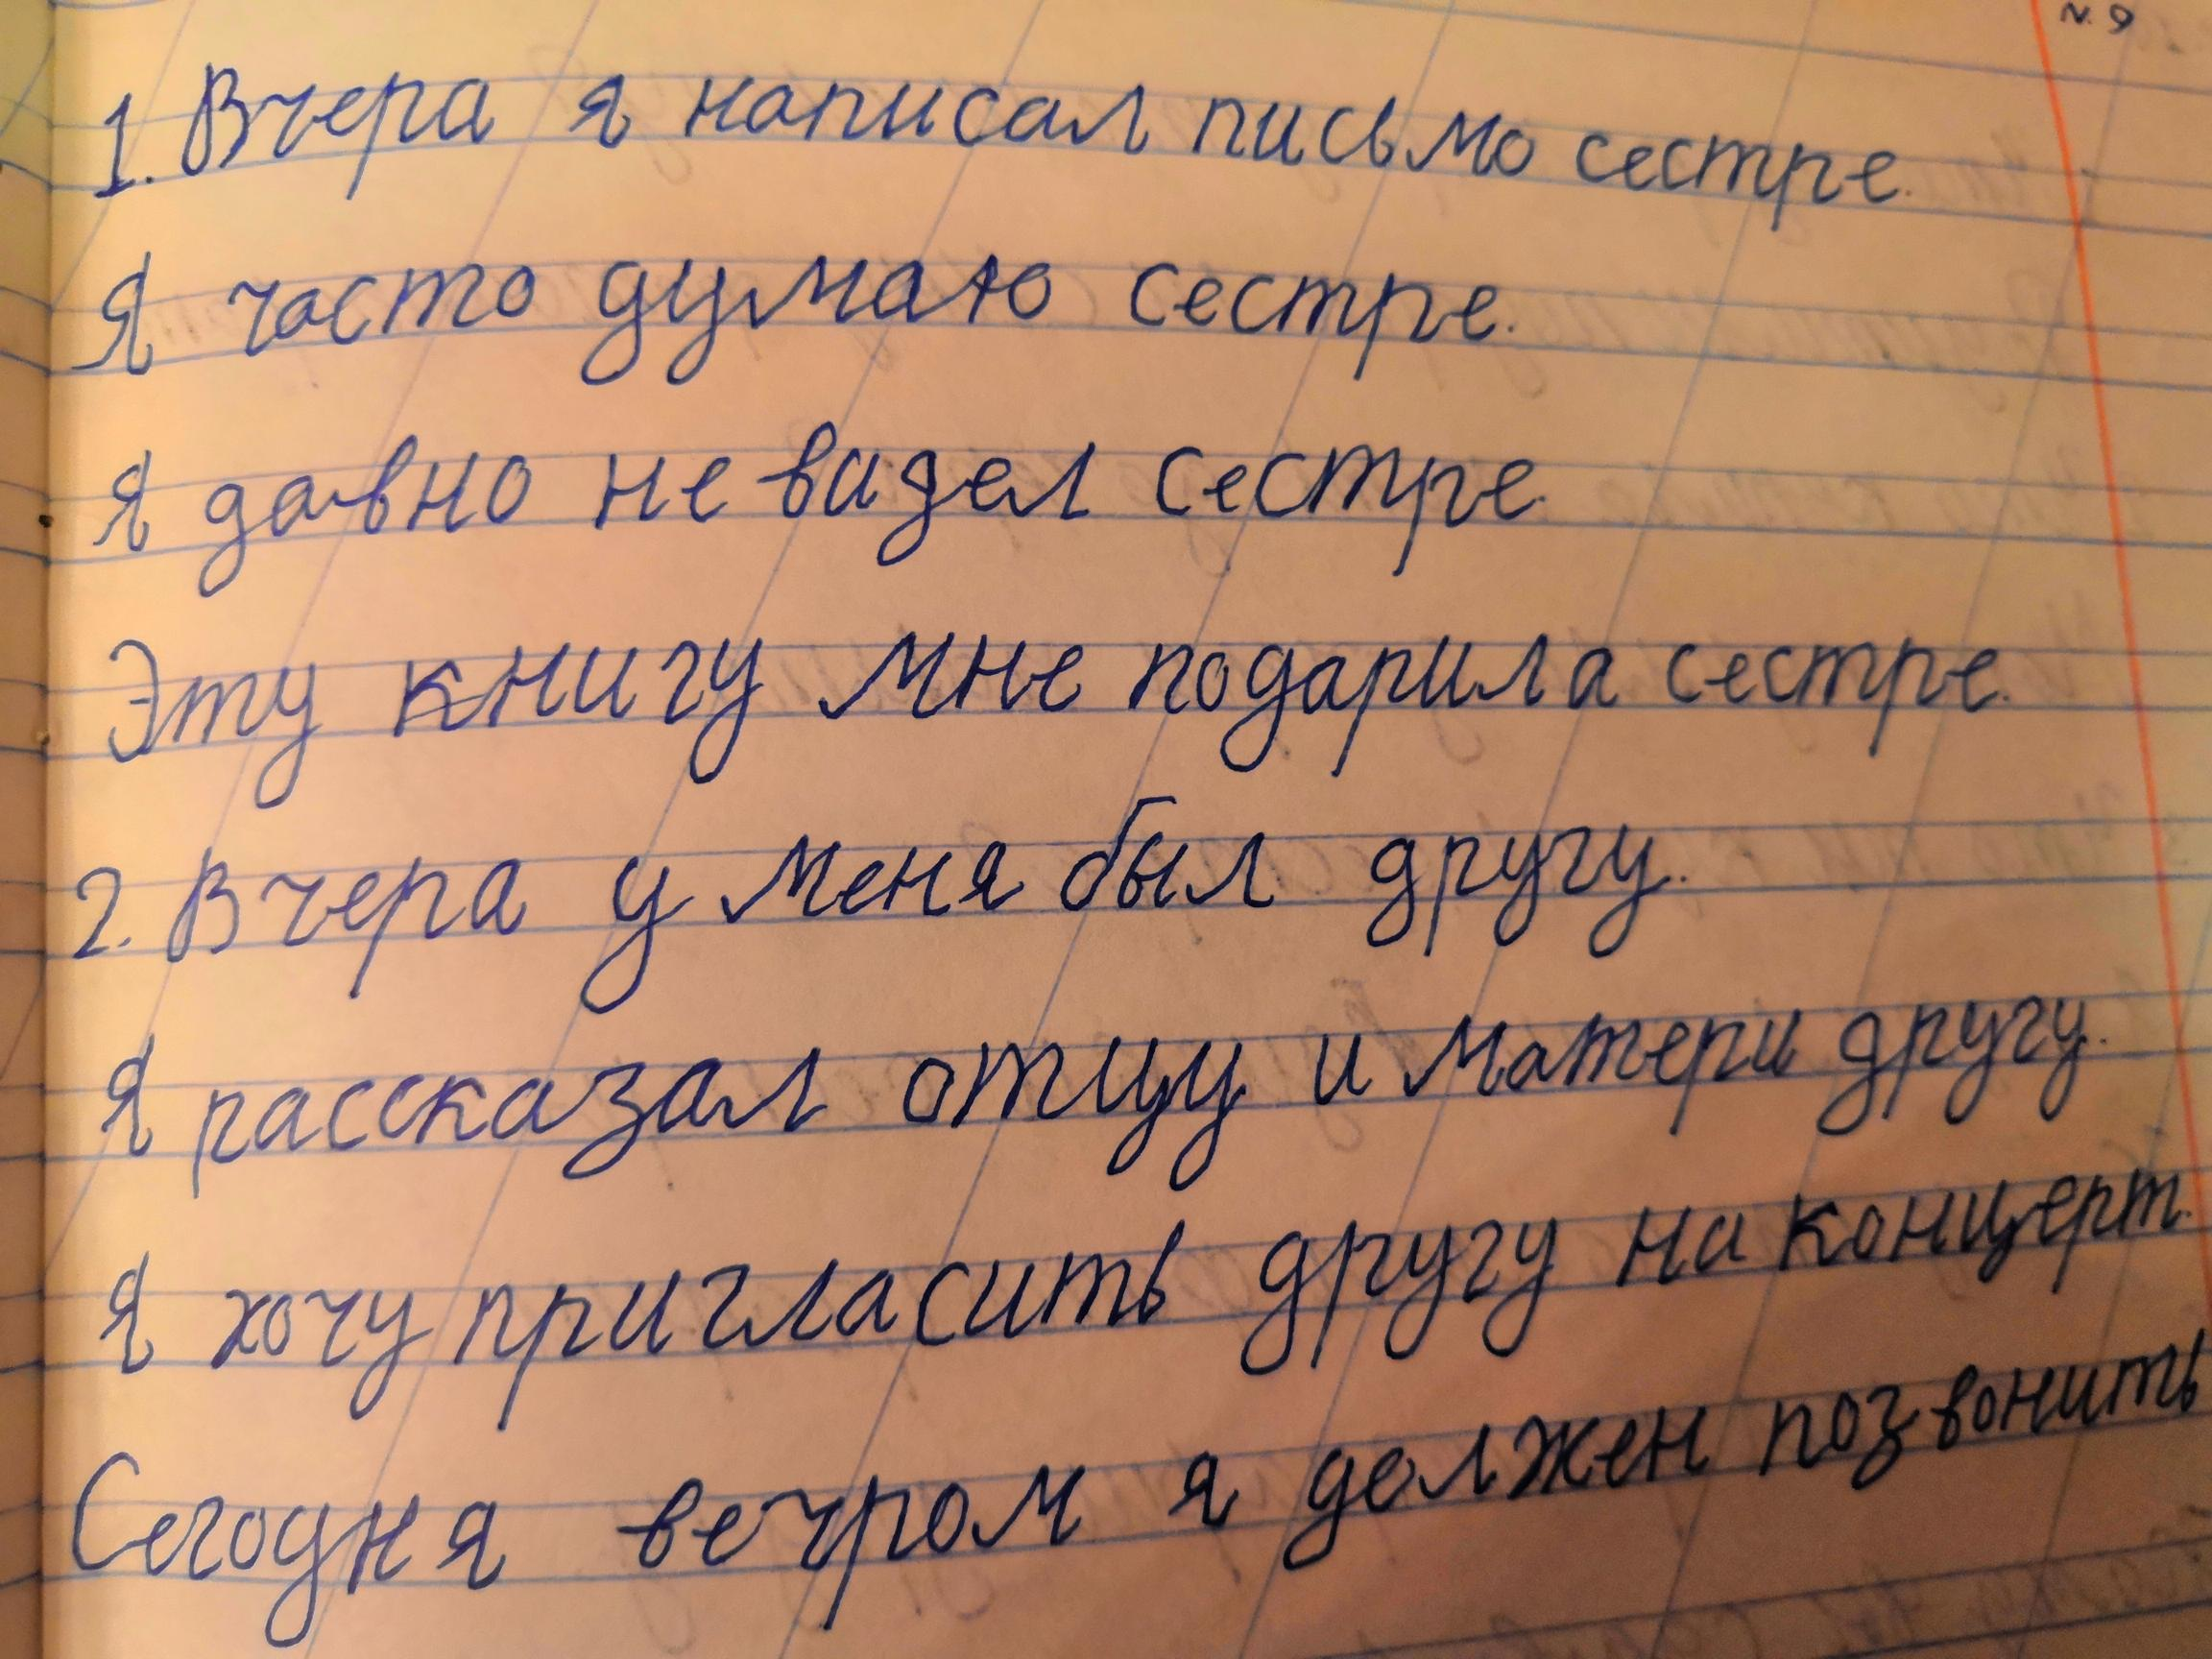 N. 9
1. Вчера я написал письмо сестре.
Я часто думаю сестре.
Я давно не видел сестре.
Эту книгу мне подарила сестре.
2. Вчера у меня был другу.
Я рассказал отцу и матери другу.
Я хочу пригласить другу на концерт.
Сегодня вечром я должен позвонить